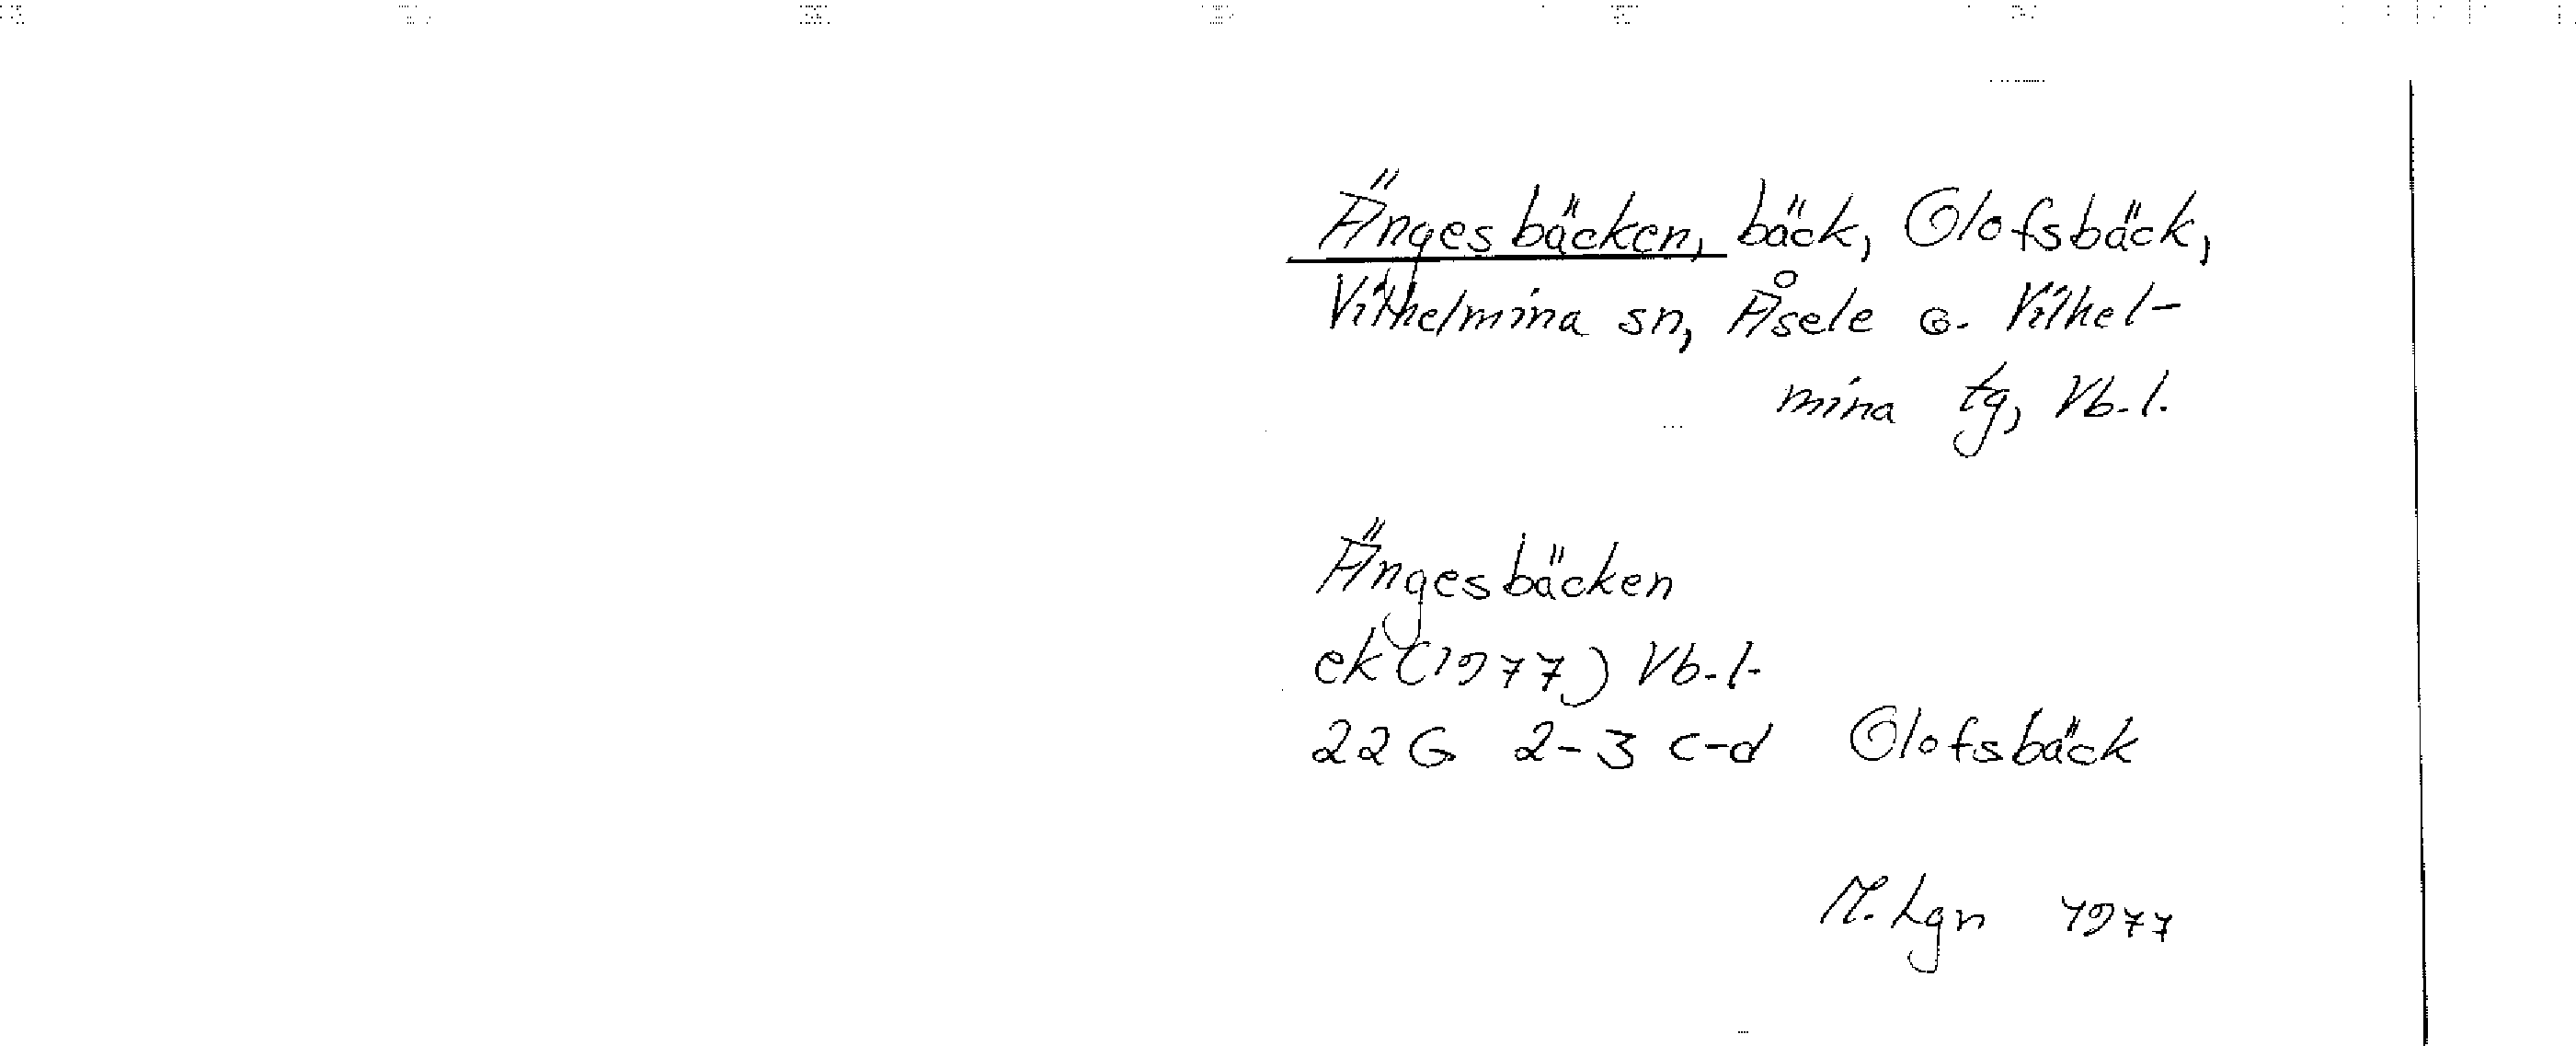 Ängesbäcken, bäck, Olofsbäck,
Vilhelmina sn, Åsele o. Vilhel-
mina tg, Vb. l.
Ängesbäcken
ek (1977) Vb. l.
22 G 2-3 c-d Olofsbäck
M. Lgn 1977